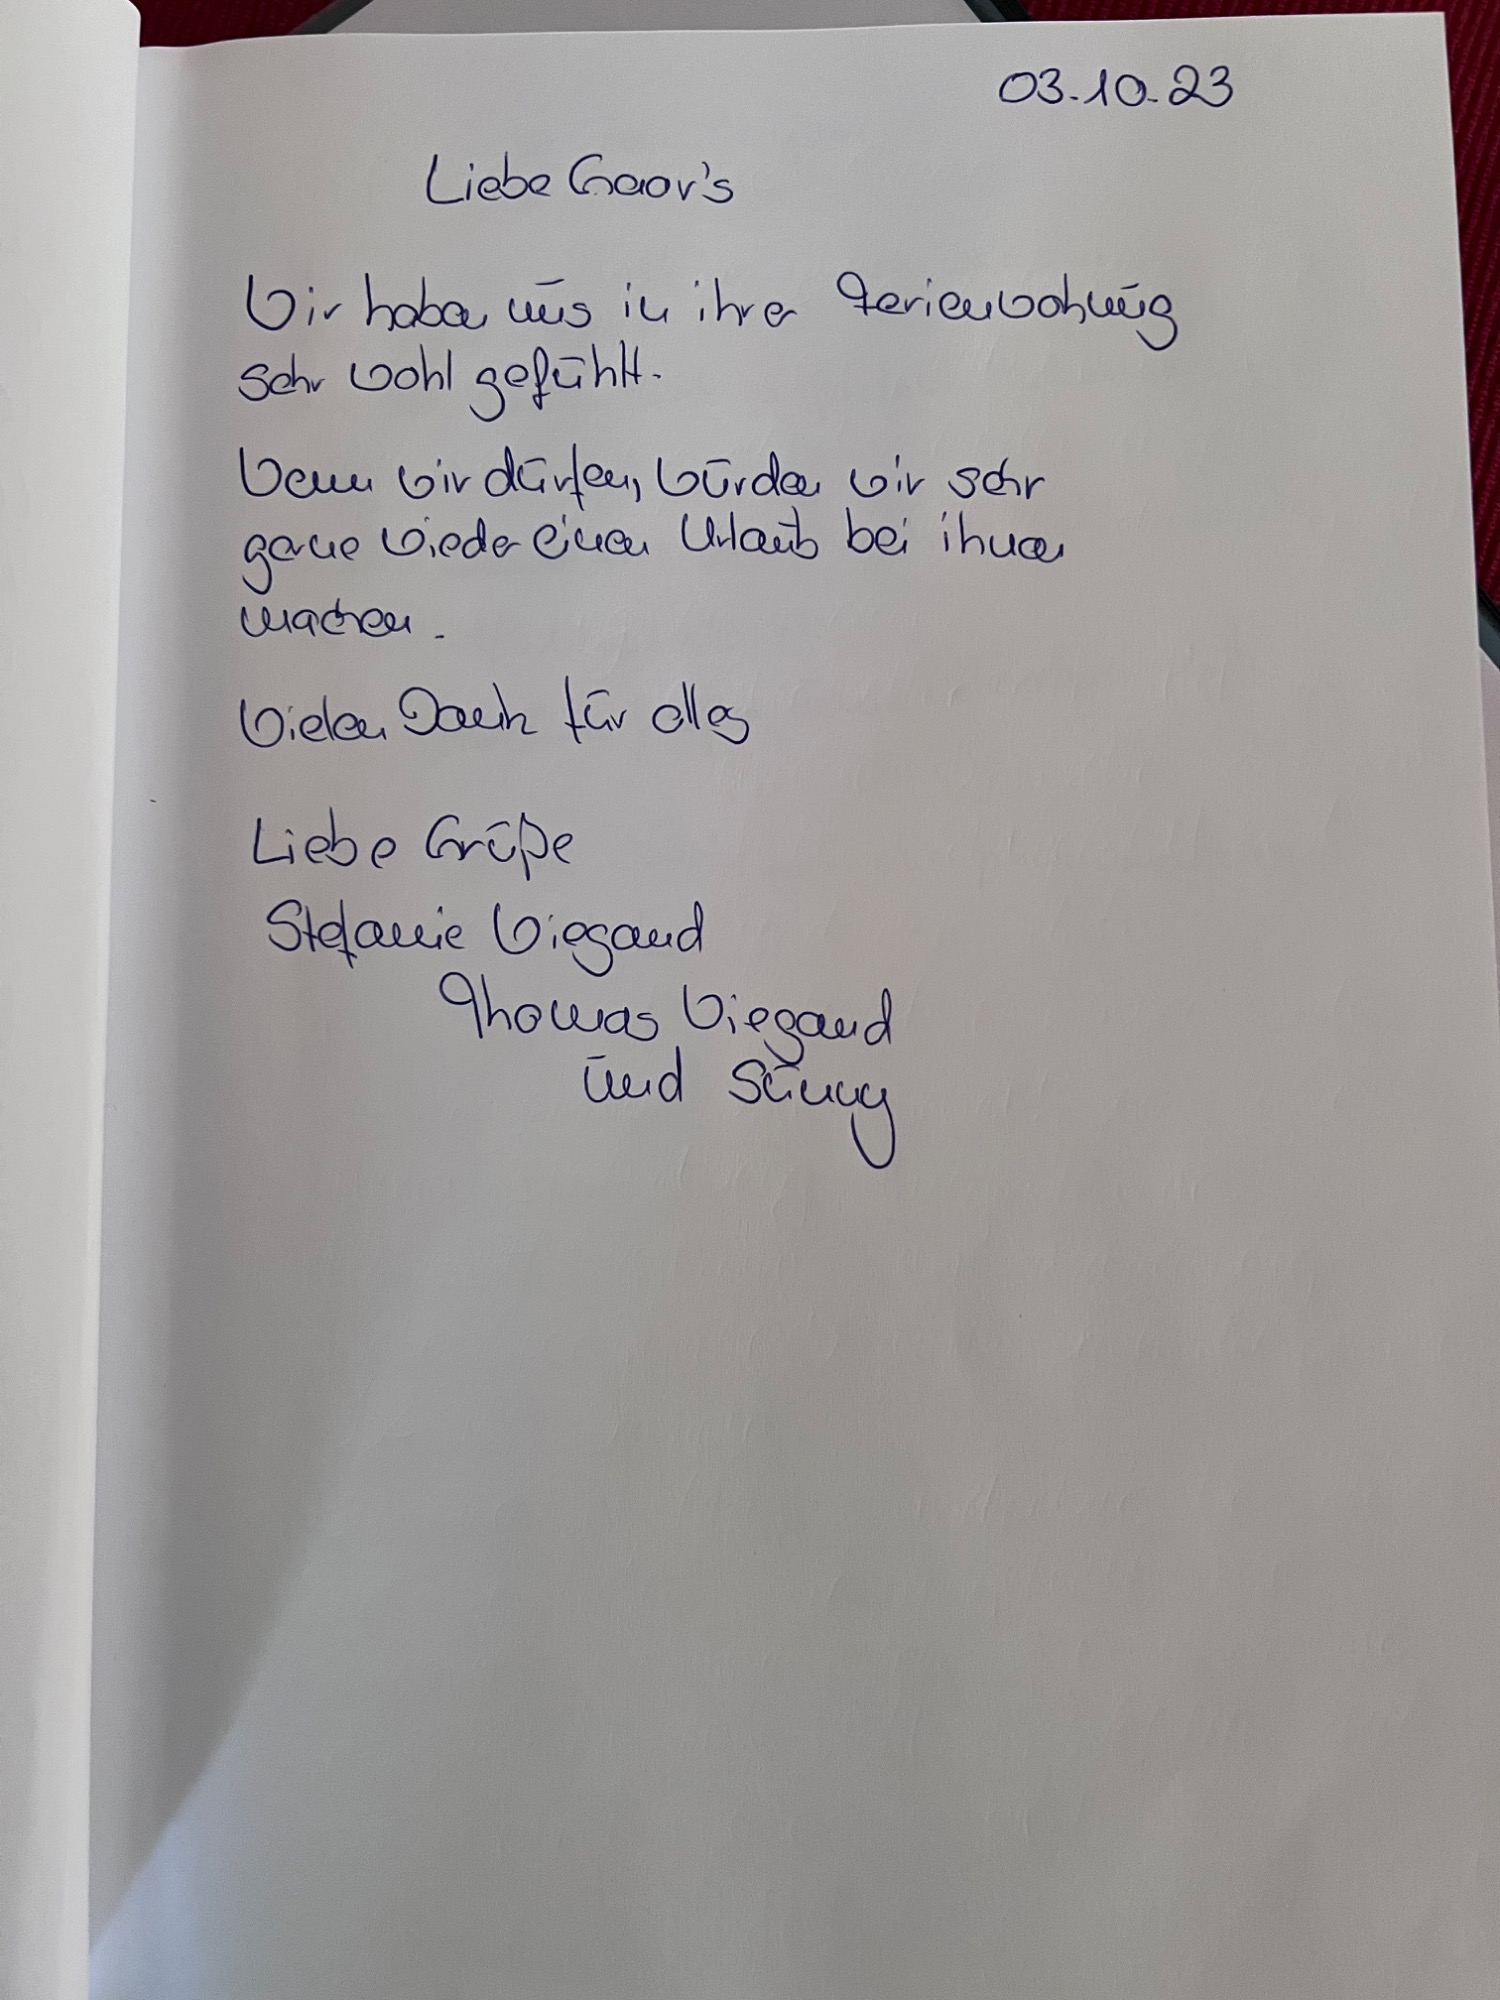 03.10.23
Liebe Gaar's
Wir haben uns in ihrer Ferienwohnung
sehr wohl gefühlt.
Wenn wir dürfen, würden wir sehr
gerne wieder einen Urlaub bei ihnen
machen.
Vielen Dank für alles
Liebe Grüße
Stefanie Wiegand
Thomas Wiegand
und Sunny